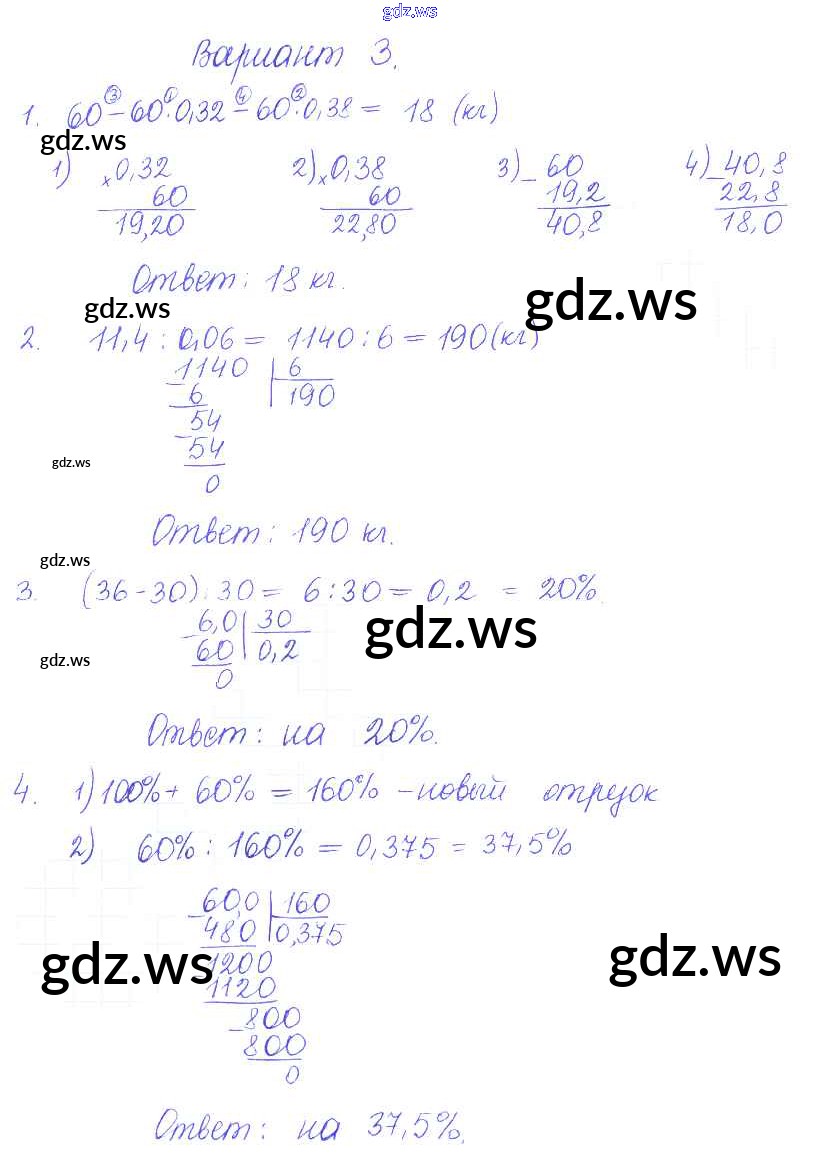 gdz.ws
Вариант 3.
1. 60 ③ – 60 ① · 0,32 ④ – 60 ② · 0,38 = 18 (кг)
gdz.ws
1) × 0,32 2) × 0,38 3) – 60 4) – 40,8
60 60 19,2 22,8
19,20 22,80 40,8 18,0
Ответ: 18 кг.
gdz.ws gdz.ws
2. 11,4 : 0,06 = 1140 : 6 = 190 (кг)
– 1140 | 6
6 | 190
– 54
54
0
gdz.ws
Ответ: 190 кг.
gdz.ws
3. (36 - 30) : 30 = 6 : 30 = 0,2 = 20%.
– 6,0 | 30
60 | 0,2
0
gdz.ws
gdz.ws
Ответ: на 20%.
4. 1) 100% + 60% = 160% – новый отрезок
2) 60% : 160% = 0,375 = 37,5%
– 60,0 | 160
480 | 0,375
– 1200
1120
– 800
800
0
gdz.ws gdz.ws
Ответ: на 37,5%.